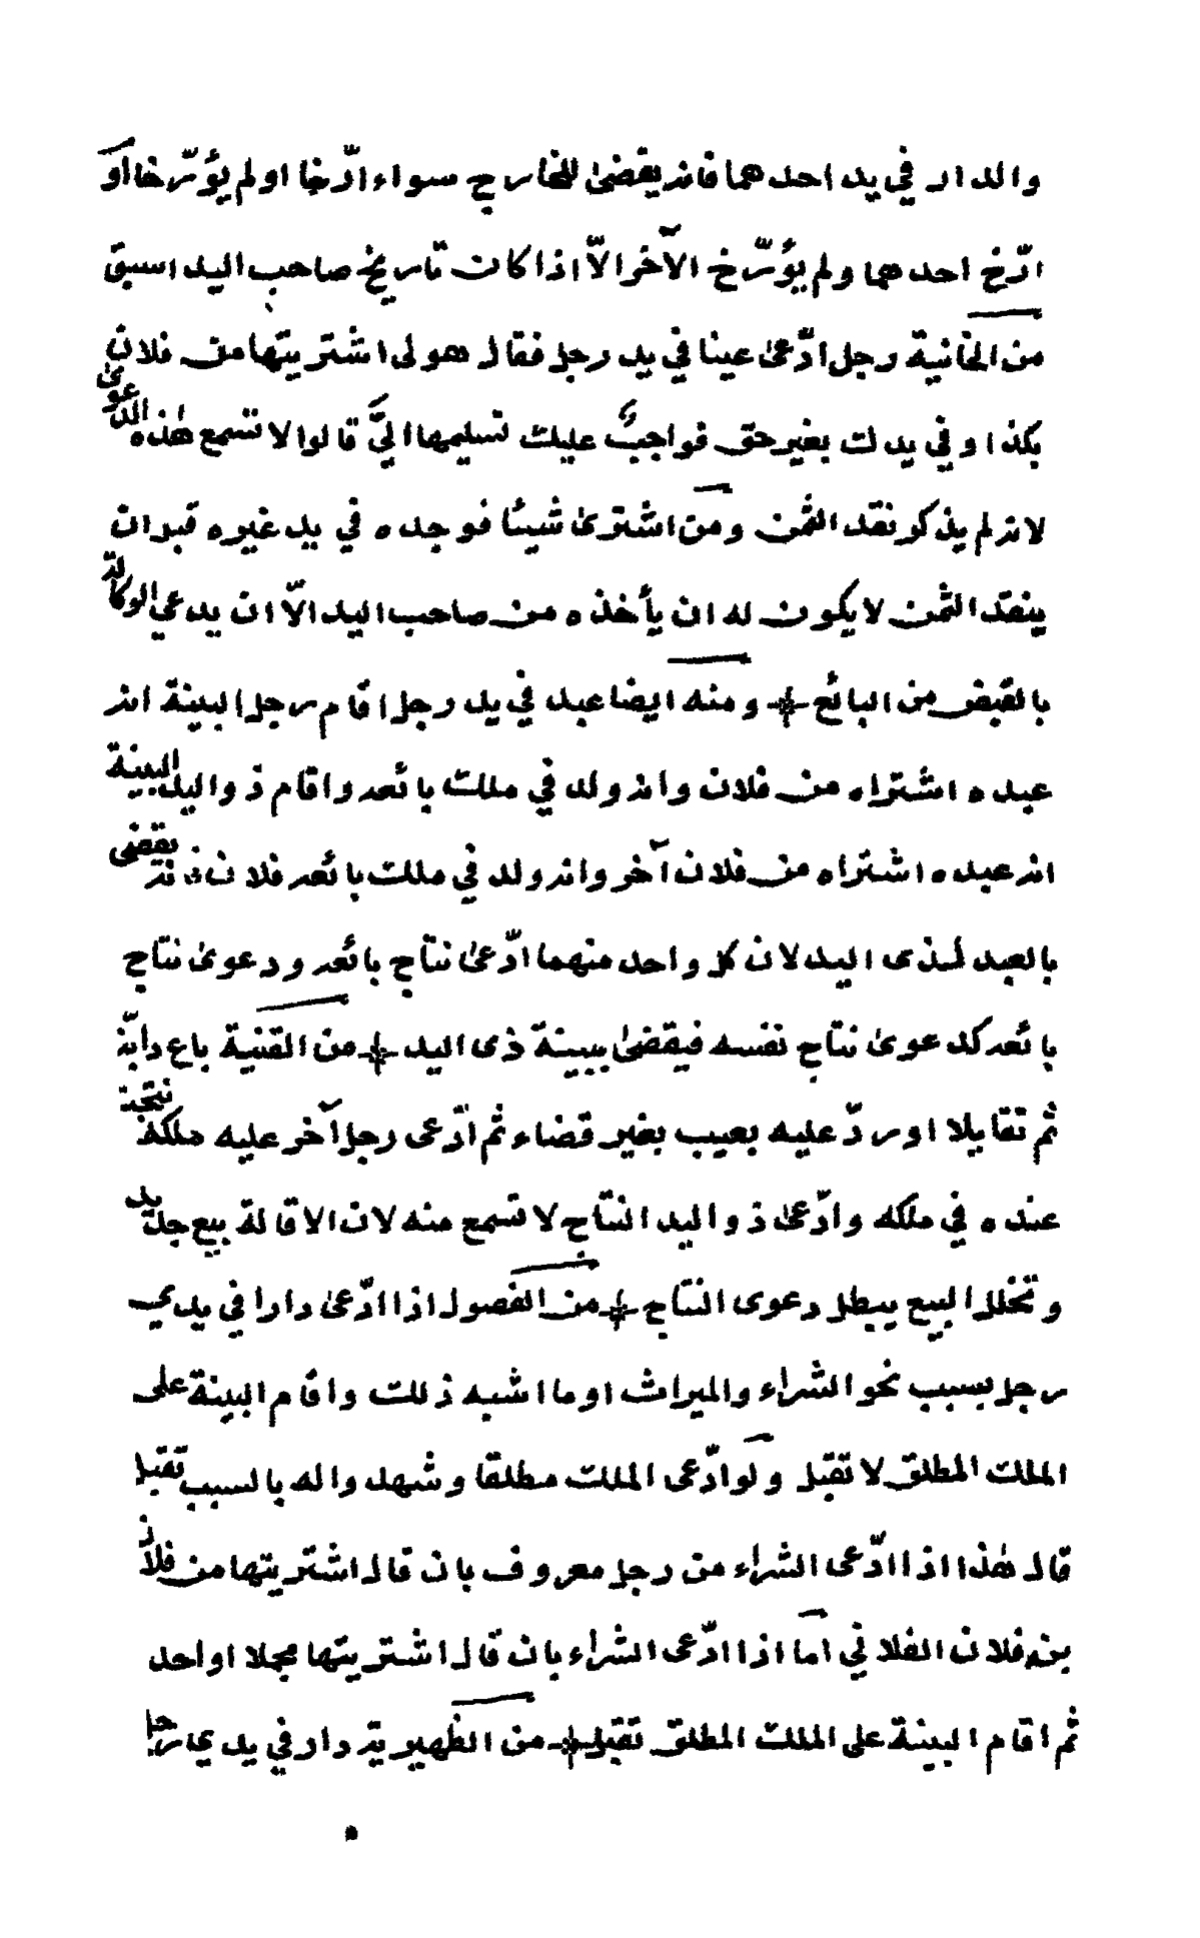 والدار في يد احدهما فانه يقضىٰ للخارج سواء ارّخا او لم يؤرّخا او
ارّخ احدهما ولم يؤرّخ الآخر الاّ اذا كان تاريخ صاحب اليد اسبق
من الخانية رجل ادّعىٰ عينا في يد رجل فقال هو لى اشتريتها من فلان
بكذا وفي يدك بغير حق فواجبٌ عليك تسليمها اليَّ قالوا لا تسمع هٰذه الدعوىٰ
لانه لم يذكر نقد الثمن ومن اشترىٰ شيئا فوجده في يد غيره قبل ان
ينقد الثمن لا يكون له ان يأخذه من صاحب اليد الاّ ان يدعي الوكالة
بالقبض من البائع ومنه ايضا عبد في يد رجل اقام رجل البينة انه
عبده اشتراه من فلان وانه ولد في ملك بائعه واقام ذو اليد البينة
انه عبده اشتراه من فلان آخر وانه ولد في ملك بائعه فلان فانه يقضى
بالعبد لذى اليد لان كل واحد منهما ادّعىٰ نتاج بائعه ودعوىٰ نتاج
بائعه كدعوىٰ نتاج نفسه فيقضىٰ ببينة ذى اليد من القنية باع دابّة
ثم تقايلا او ردّ عليه بعيب بغير قضاء ثم ادّعى رجل آخر عليه ملكه نتجت
عنده في ملكه وادّعىٰ ذو اليد النتاج لا تسمع منه لان الاقالة بيع جديد
وتخلل البيع يبطل دعوى النتاج من الفصول اذا ادّعىٰ دارا في يدي
رجل بسبب نحو الشراء والميراث او ما اشبه ذلك واقام البينة على
الملك المطلق لا تقبل ولو ادّعى الملك مطلقا وشهدوا له بالسبب تقبل
قال هٰذا اذا ادّعى الشراء من رجل معروف بان قال اشتريتها من فلان
بن فلان الفلاني اما اذا ادّعى الشراء بان قال اشتريتها مجملا او احد
ثم اقام البينة على الملك المطلق تقبل من الظهيرية دار في يدي رجل